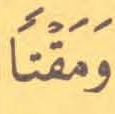 وَمَقْتًا